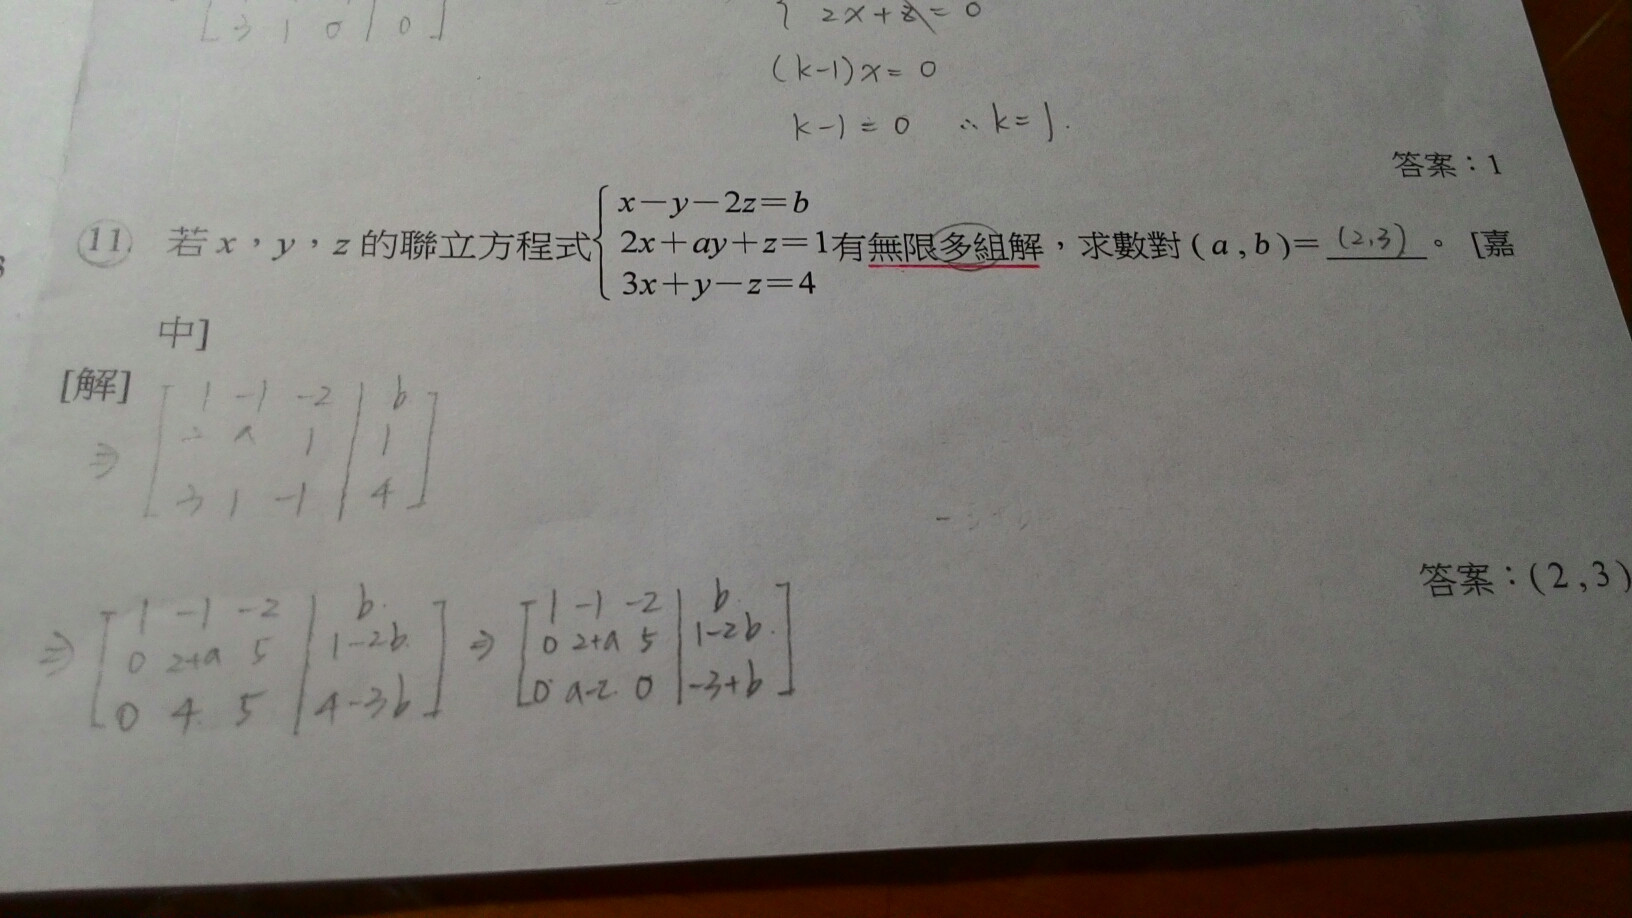 [3 1 0 | 0]
2x+z=0
(k-1)x=0
k-1=0 ∴k=1.
答案：1
11. 若x，y，z的聯立方程式{x－y－2z＝b
2x＋ay＋z＝1
3x＋y－z＝4 有無限多組解，求數對(a,b)＝(2,3)。[嘉
中]
[解]
⇒ [1 -1 -2 | b
a 1 | 1
3 1 -1 | 4]
⇒ [1 -1 -2 | b.
0 2+a 5 | 1-2b.
0 4. 5 | 4-3b]
⇒ [1 -1 -2 | b.
0 2+a 5 | 1-2b.
0 a-2. 0 | -3+b]
答案：(2,3)